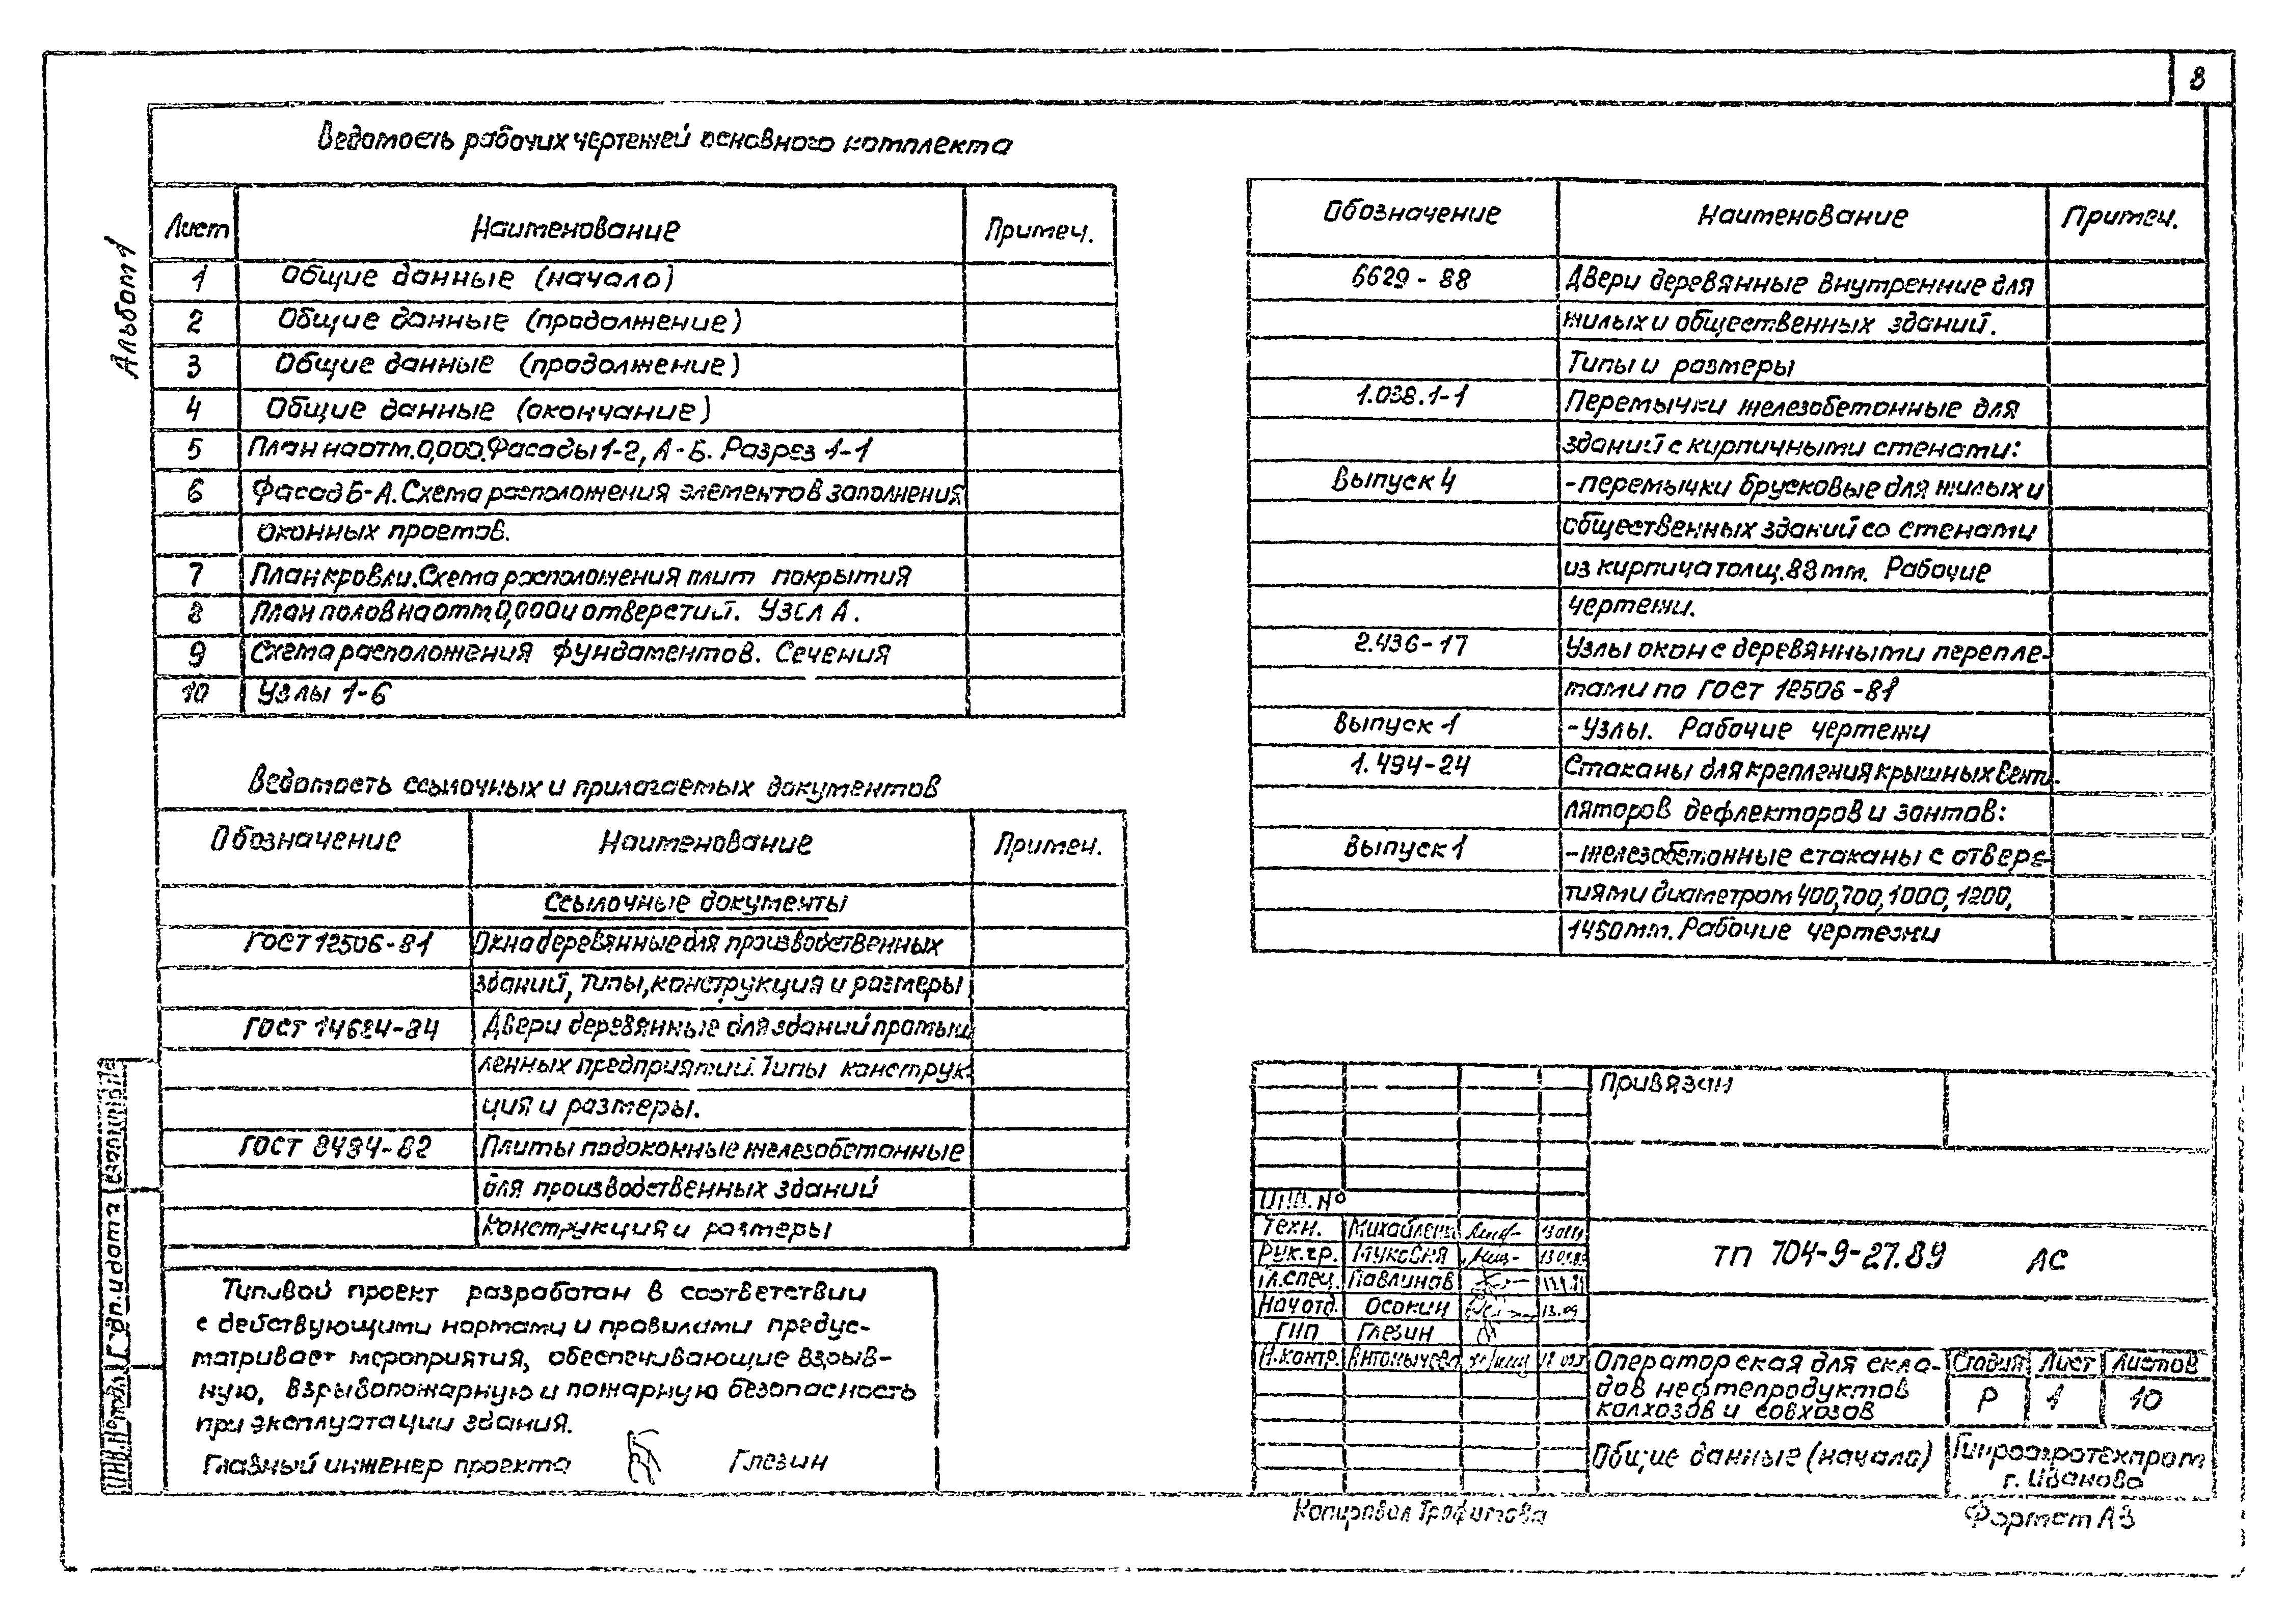 8
Альбом 1
Ведомость рабочих чертежей основного комплекта
Лист Наименование Примеч.
1 Общие данные (начало)
2 Общие данные (продолжение)
3 Общие данные (продолжение)
4 Общие данные (окончание)
5 План на отм. 0,000. Фасады 1-2, А-Б. Разрез 1-1
6 Фасад Б-А. Схема расположения элементов заполнения
оконных проемов.
7 План кровли. Схема расположения плит покрытия
8 План полов на отм 0,000 и отверстий. Узел А.
9 Схема расположения фундаментов. Сечения
10 Узлы 1-6
Ведомость ссылочных и прилагаемых документов
Обозначение Наименование Примеч.
Ссылочные документы
ГОСТ 12506-81 Окна деревянные для производственных
зданий, Типы, конструкция и размеры
ГОСТ 14624-84 Двери деревянные для зданий промыш
ленных предприятий. Типы конструк-
ция и размеры.
ГОСТ 8484-82 Плиты подоконные железобетонные
для производственных зданий
Конструкция и размеры
Типовой проект разработан в соответствии
с действующими нормами и правилами предус-
матривает мероприятия, обеспечивающие взрыв-
ную, взрывопожарную и пожарную безопасность
при эксплуатации здания.
Главный инженер проекта Глезин
Обозначение Наименование Примеч.
6629-88 Двери деревянные внутренние для
жилых и общественных зданий.
Типы и размеры
1.038.1-1 Перемычки железобетонные для
зданий с кирпичными стенами:
Выпуск 4 -перемычки брусковые для жилых и
общественных зданий со стенами
из кирпича толщ. 88 мм. Рабочие
чертежи.
2.436-17 Узлы окон с деревянными перепле-
тами по ГОСТ 12506-81
Выпуск 1 -Узлы. Рабочие чертежи
1.494-24 Стаканы для крепления крышных венти-
ляторов дефлекторов и зонтов:
Выпуск 1 -железобетонные стаканы с отверс-
тиями диаметром 400, 700, 1000, 1200,
1450 мм. Рабочие чертежи
Привязан
ИНВ. №
Техн.
Рук.гр.
Гл.спец. Павлинов
Нач отд. Осокин 13.09
ГИП Глезин
Н.контр. Антонычева
ТП 704-9-27.89 АС
Операторская для скла-
дов нефтепродуктов
колхозов и совхозов
Стадия Лист Листов
Р 1 10
Общие данные (начало)
Гипроагротехпром
г. Иваново
Инв.№ подл. Подп. и дата
Копировал Трофимова
Формат А3